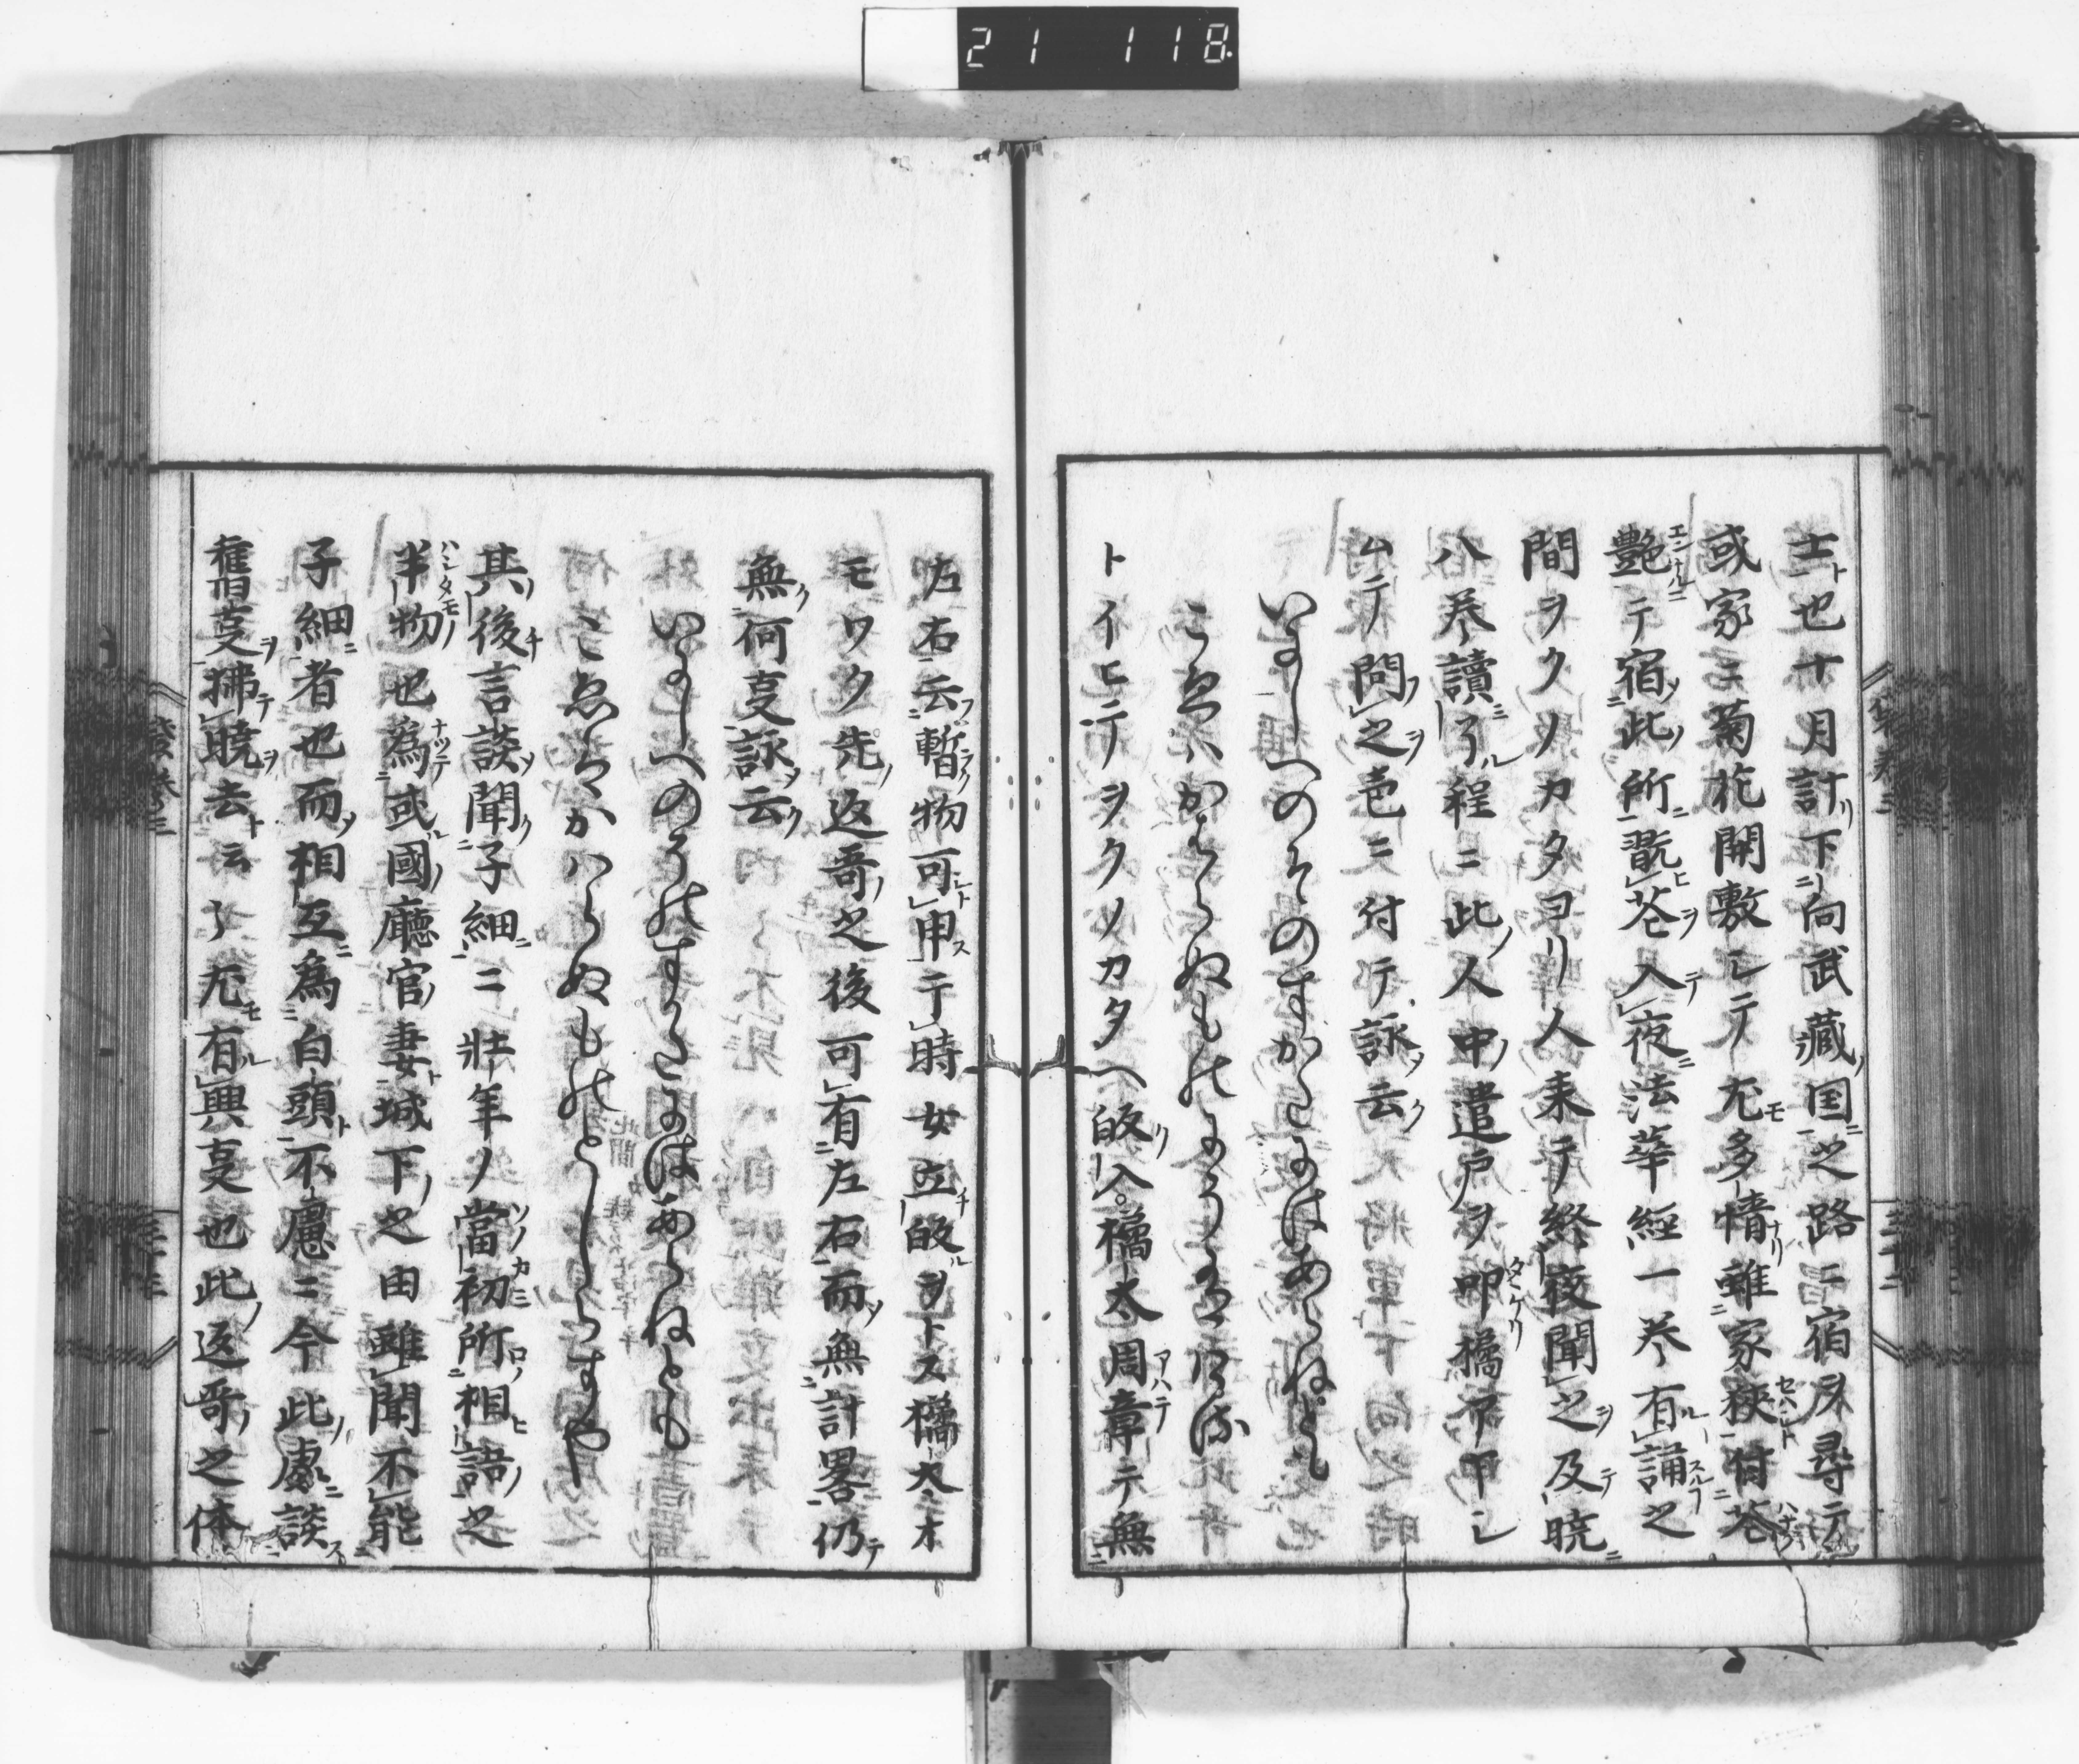 21 118
士ト也十月計リ下ニ向武蔵ノ国ニ之路ニ宿ヲ尋テ
或家ニ菊花開敷シテ尤モ多情ナリ雖家狭セハシト付花
艶エンナルニテ宿ソ此ノ所ニ翫ヒ花ヲ入テ夜ニ法華経一巻有ル誦スル之
間ヲクノカタヨリ人来テ終夜聞之ヲ及テ暁ニ
八巻讀了ル程ニ此ノ人中ノ遣戸ヲ叩タヽケリ橘アヤシ
ムテ問フ之ヲ壱ニ付テ詠ソ云ク
いにしへのそのすかたにはあらねとも
こゑはかはらぬものにそ
トイヒテヲクノカタヘ皈リ入橘太周章アハテテ無ニ
左右云フ暫ラク物可シト申ステ時女立チ皈ルヲトス橘太オ
モワク先ノ返哥ノ之後可有ニ左右而ソ無ニ計畧仍テ
無ク何叓詠ソ云ク
いにしへのそのすかたにはあらねとも
こゑはかはらぬものとしらすや
其ノ後チ言談ソ聞ク子細ニ壮年ノ當ソノカミ初所ロノ相ヒ語ノ之
半ハシタモノ物也為ナツテ或ル國ノ廳官ノ妻ト城下ノ之由雖聞不能ニ
子細ニ者也而ソ相互ニ為白頭ト不慮ニ今此ノ處ニ談スル
舊叓ヲ拂テ暁ヲ去ト云々尤モ有ル興叓也此ノ返哥ノ之体